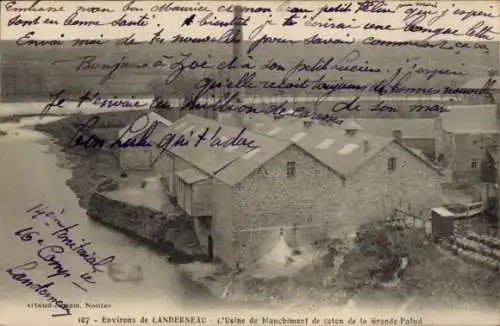 Embrasse mon bon Maurice et mon petit
Sont en bonne santé à bientôt je t'écrirai une longue lettre
Envoi moi de tes nouvelles pour savoir comment ça va
Bonjour à Zoé et à son petit Lucien j'espère
qu'elle reçoit toujours de bonne nouvelle
Je t'envoie un million de de son mari
caresses
bon Lulu qui t'adore
14e territorial
16e Comp ie
Landerneau
Artaud-Nozais, Nantes
107 - Environs de LANDERNEAU - L'Usine de blanchiment de coton de la Grande-Palud